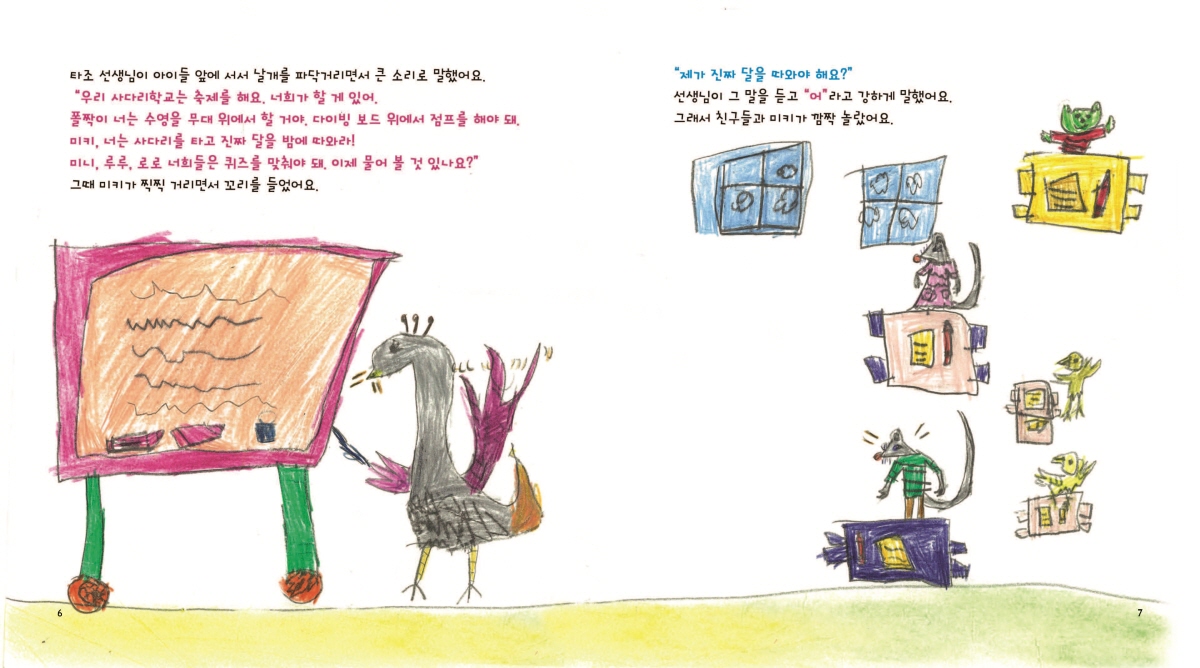 타조 선생님이 아이들 앞에 서서 날개를 파닥거리면서 큰 소리로 말했어요.
“우리 사다리학교는 축제를 해요. 너희가 할 게 있어.
폴짝이 너는 수영을 무대 위에서 할 거야. 다이빙 보드 위에서 점프를 해야 돼.
미키, 너는 사다리를 타고 진짜 달을 밤에 따와라!
미니, 루루, 로로 너희들은 퀴즈를 맞춰야 돼. 이제 물어 볼 것 있나요?”
그때 미키가 찍찍 거리면서 꼬리를 들었어요.
“제가 진짜 달을 따와야 해요?”
선생님이 그 말을 듣고 “어”라고 강하게 말했어요.
그래서 친구들과 미키가 깜짝 놀랐어요.
6
7